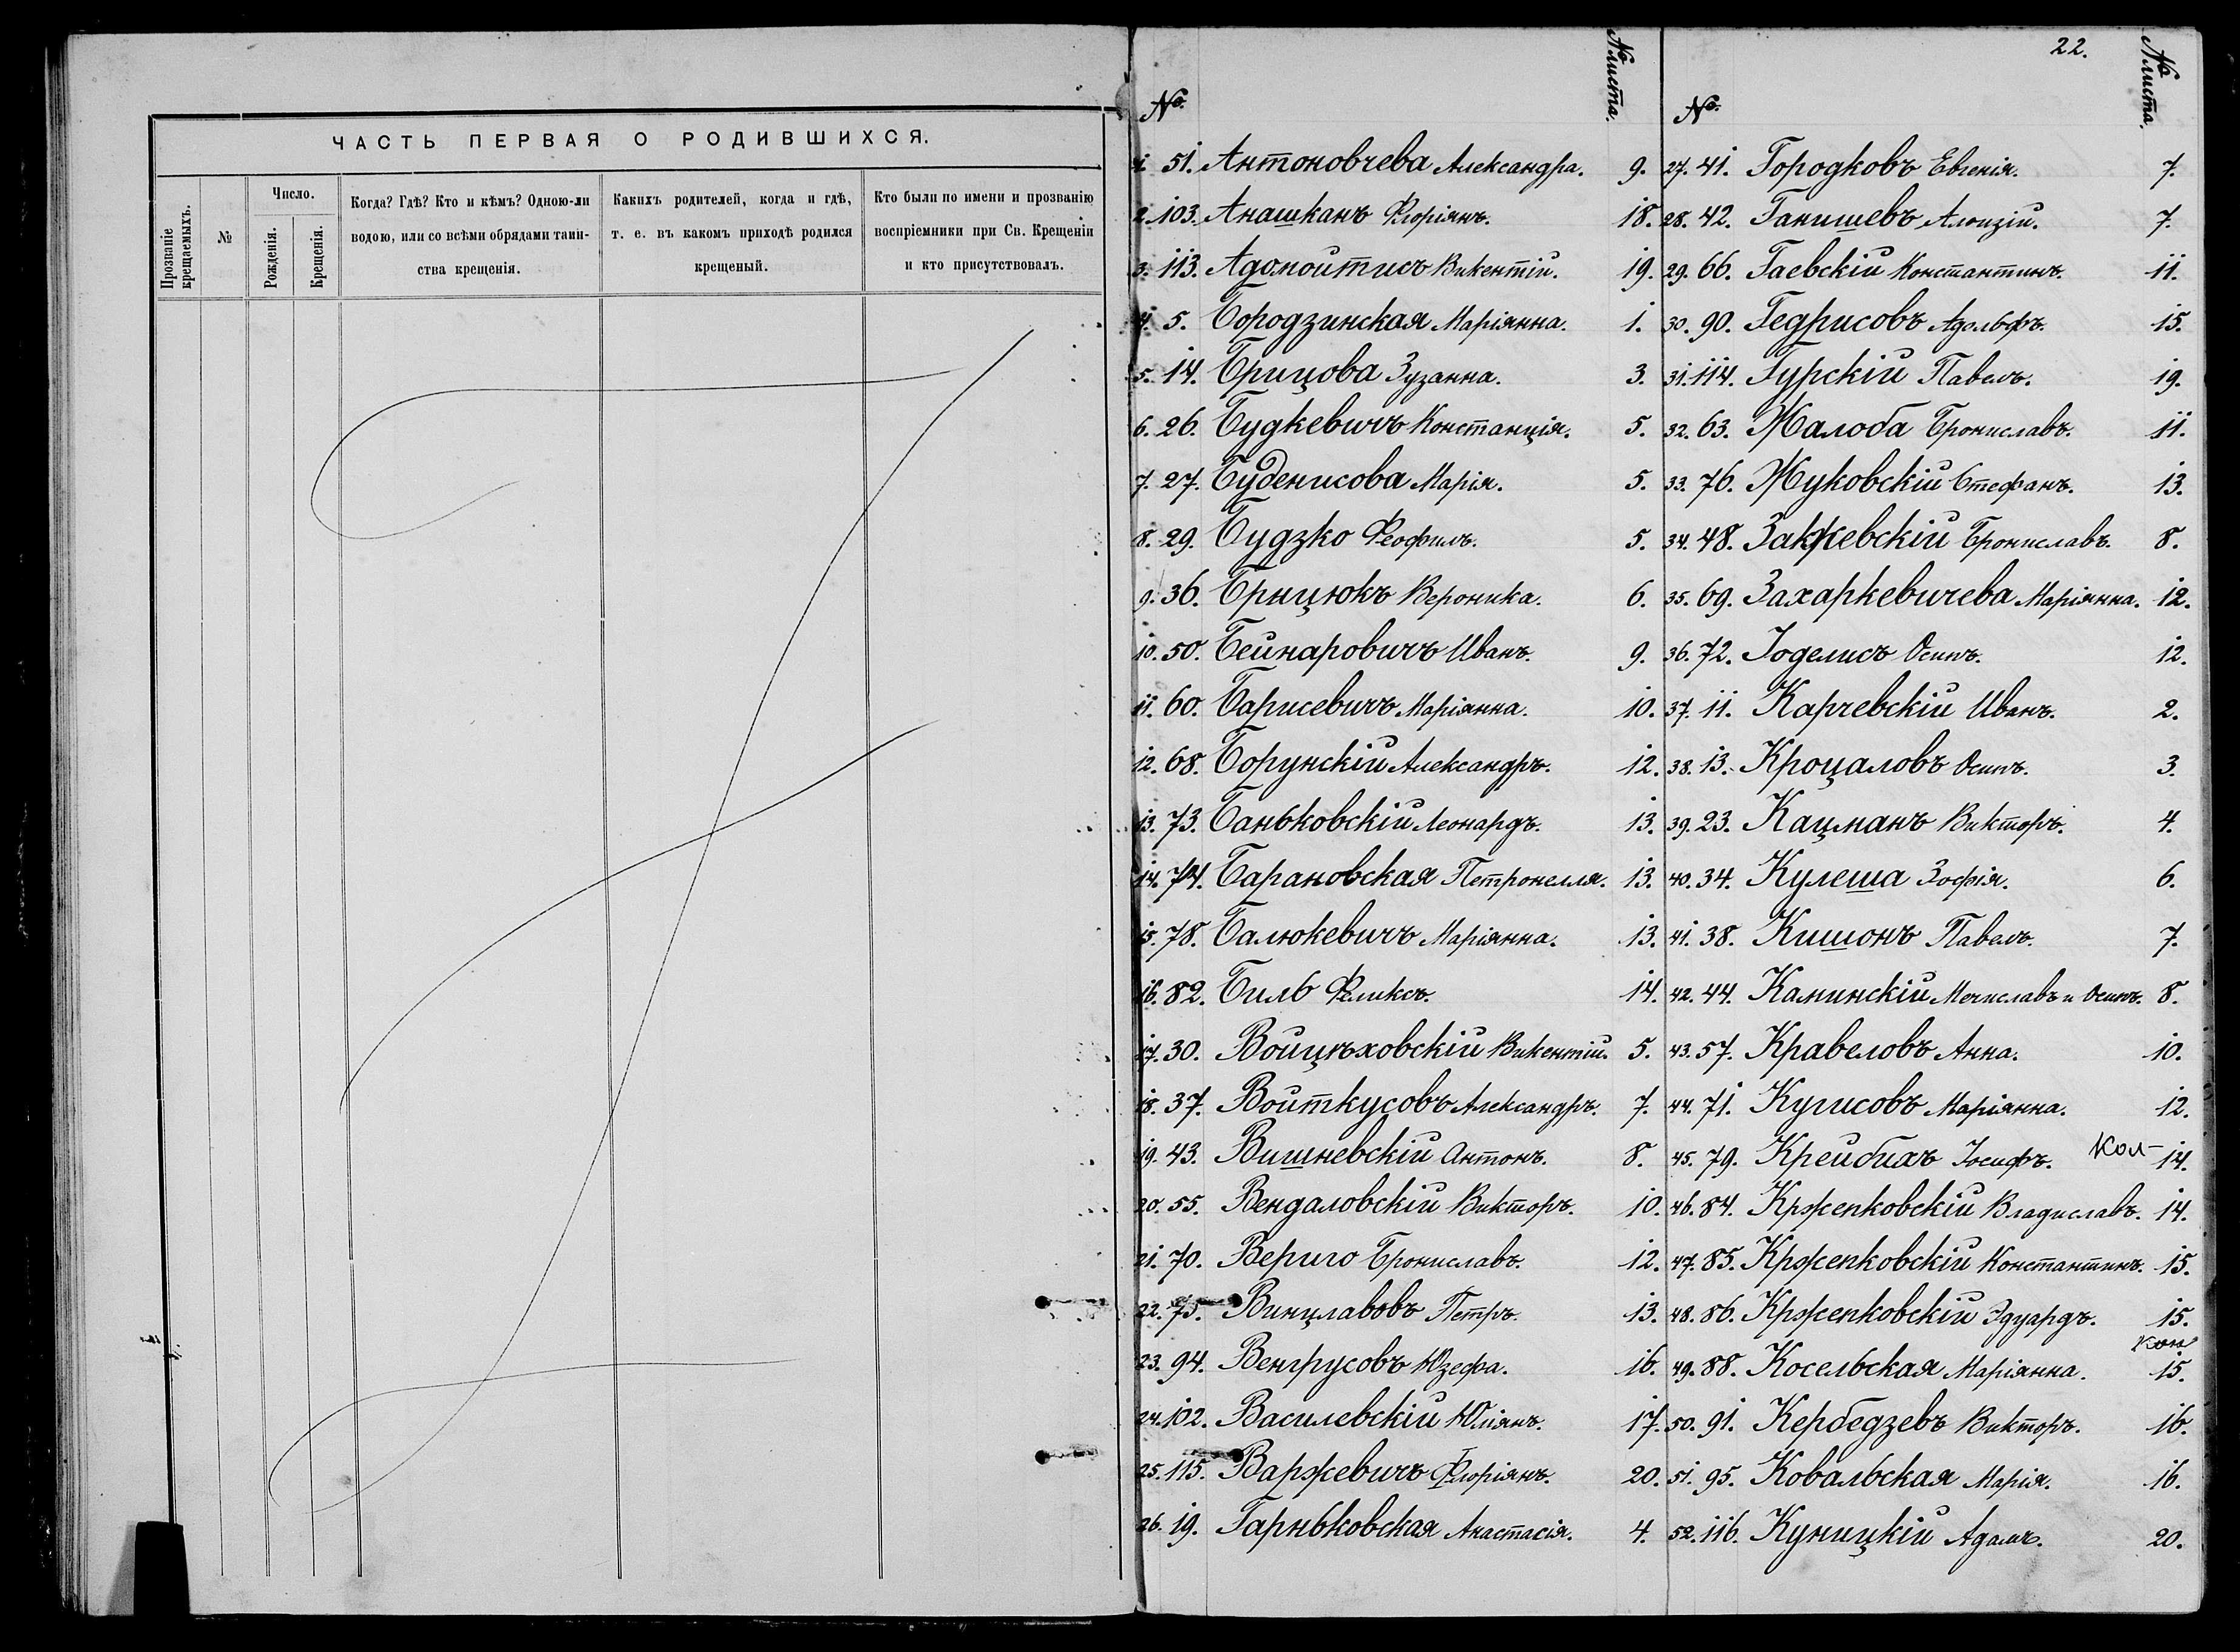 ЧАСТЬ ПЕРВАЯ О РОДИВШИХСЯ.
Прозваніе крещаемыхъ.
№
Число.
Рожденія.
Крещенія.
Когда? Гдѣ? Кто и кѣмъ? Одною-ли
водою, или со всѣми обрядами таин-
ства крещенія.
Какихъ родителей, когда и гдѣ,
т. е. въ какомъ приходѣ родился
крещеный.
Кто были по имени и прозванію
воспріемники при Св. Крещеніи
и кто присутствовалъ.
№ № листа.
1. 51. Антоновчева Александра. 9.
2. 103. Анашканъ Флоріянъ. 18.
3. 113. Адомойтисъ Викентій. 19.
4. 5. Бородзинская Маріянна. 1.
5. 14. Брицова Зузанна. 3.
6. 26. Будкевичъ Констанція. 5.
7. 27. Буденисова Марія. 5.
8. 29. Будзко Феофилъ. 5.
9. 36. Брицюкъ Вероника. 6.
10. 50. Бейнаровичъ Иванъ. 9.
11. 60. Барисевичъ Маріянна. 10.
12. 68. Борунскій Александръ. 12.
13. 73. Баньковскій Леонардъ. 13.
14. 74. Барановская Петронелля. 13.
15. 78. Балюкевичъ Маріянна. 13.
16. 82. Биль Феликсъ. 14.
17. 30. Войцѣховскій Викентій. 5.
18. 37. Войткусовъ Александръ. 7.
19. 43. Вишневскій Антонъ. 8.
20. 55. Вендаловскій Викторъ. 10.
21. 70. Вериго Брониславъ. 12.
22. 75. Винцлавовъ Петръ. 13.
23. 94. Венгрусовъ Юзефа. 16.
24. 102. Василевскій Юліянъ. 17.
25. 115. Варжевичъ Флоріянъ. 20.
26. 19. Гарньковская Анастасія. 4.
22.
№ № листа.
27. 41. Городковъ Евгенія. 7.
28. 42. Ганишевъ Алоизій. 7.
29. 66. Гаевскій Константинъ. 11.
30. 90. Гедрисовъ Адольфъ. 15.
31. 114. Гурскій Павелъ. 19.
32. 63. Жалоба Брониславъ. 11.
33. 76. Жуковскій Стефанъ. 13.
34. 48. Закжевскій Брониславъ. 8.
35. 69. Захаркевичева Маріянна. 12.
36. 72. Іоделисъ Осипъ. 12.
37. 11. Карчевскій Иванъ. 2.
38. 13. Кроцаловъ Осипъ. 3.
39. 23. Кацманъ Викторъ. 4.
40. 34. Кулеша Зофія. 6.
41. 38. Кишонъ Павелъ. 7.
42. 44. Каминскій Мечиславъ и Осипъ. 8.
43. 57. Кравеловъ Анна. 10.
44. 71. Кугисовъ Маріянна. 12.
45. 79. Крейбихъ Іосифъ. Кол- 14.
46. 84. Крженковскій Владиславъ. 14.
47. 85. Крженковскій Константинъ. 15.
48. 86. Крженковскій Эдуардъ. 15.
49. 88. Косельская Маріянна. кон 15.
50. 91. Кербедзевъ Викторъ. 16.
51. 95. Ковальская Марія. 16.
52. 116. Куницкій Адамъ. 20.